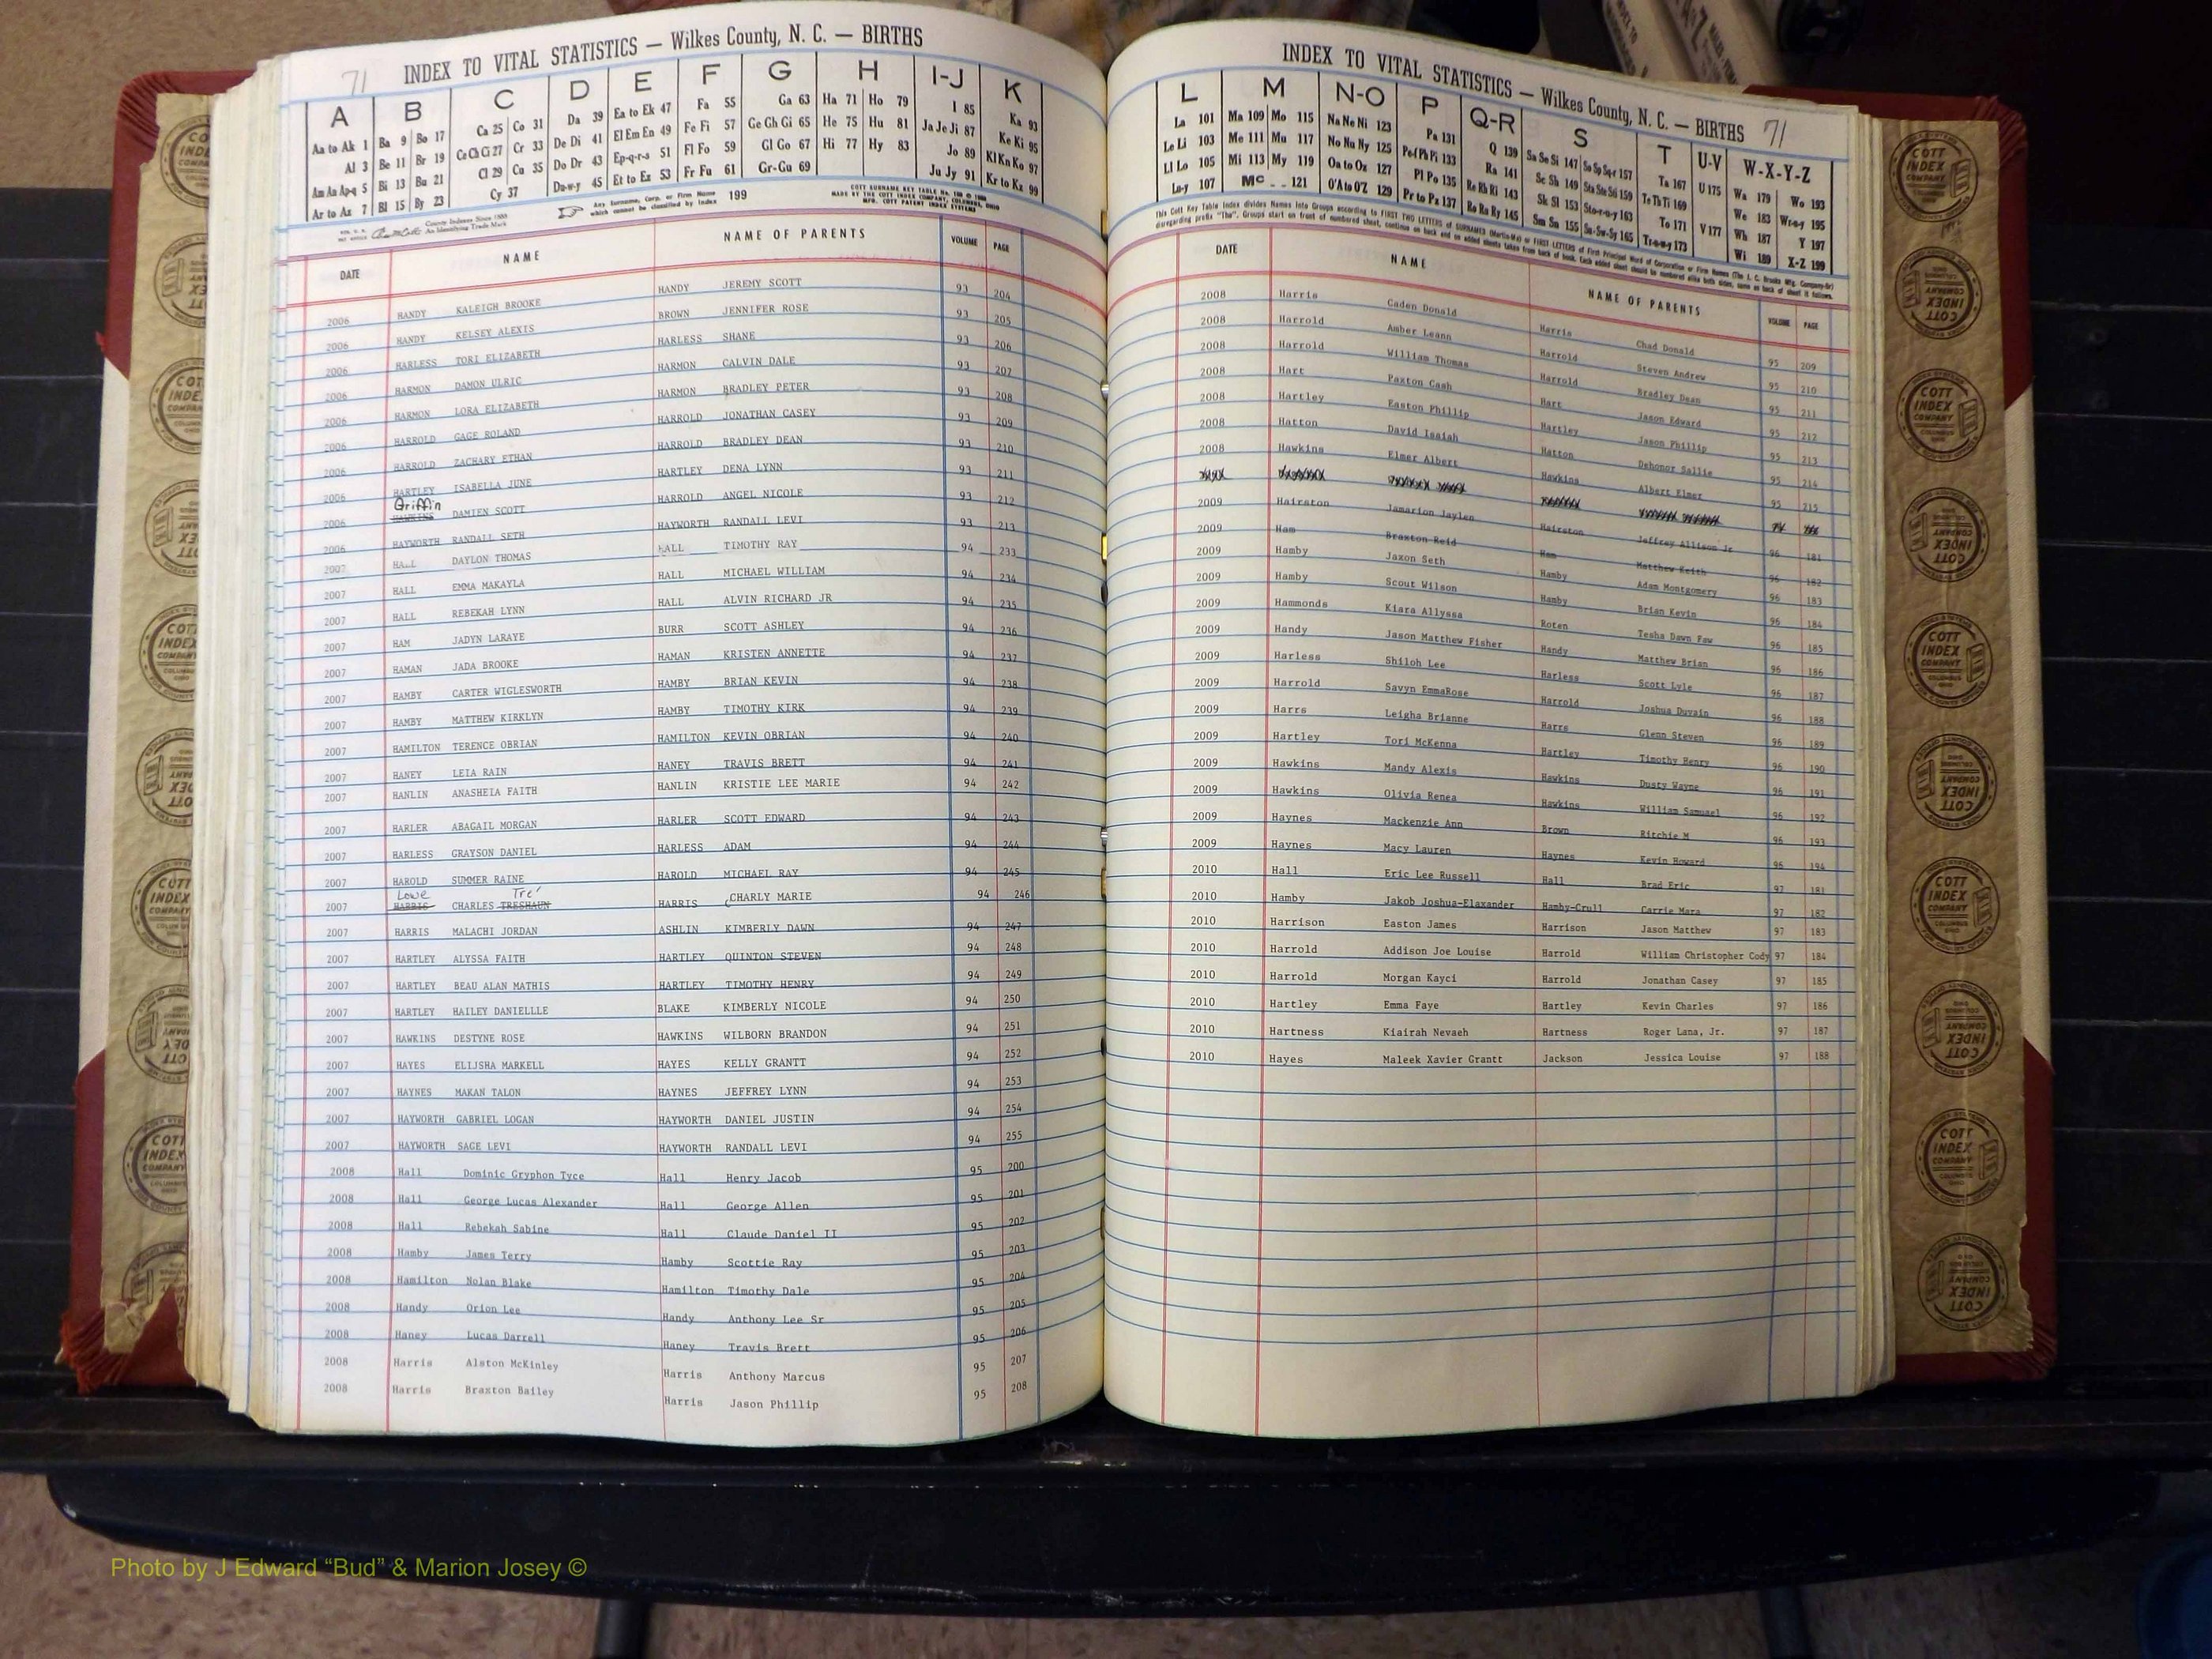 71 INDEX TO VITAL STATISTICS — Wilkes County, N. C. — BIRTHS
A B C D E F G H I-J K
Aa to Ak 1 Ba 9 Bo 17 Ca 25 Co 31 Da 39 Ea to Ek 47 Fa 55 Ga 63 Ha 71 Ho 79 I 85 Ka 93
Al 3 Be 11 Br 19 Ce Ch Ci 27 Cr 33 De Di 41 El Em En 49 Fe Fi 57 Ge Gh Gi 65 He 75 Hu 81 Ja Je Ji 87 Ke Ki 95
Am An Ap-q 5 Bi 13 Bu 21 Cl 29 Cu 35 Do Dr 43 Ep-q-r-s 51 Fl Fo 59 Gl Go 67 Hi 77 Hy 83 Jo 89 Kl Kn Ko 97
Ar to Az 7 Bl 15 By 23 Cy 37 Du-w-y 45 Et to Ez 53 Fr Fu 61 Gr-Gu 69 Ju Jy 91 Kr to Kz 99
Any Surname, Corp. or Firm Name which cannot be classified by Index 199
DATE NAME NAME OF PARENTS VOLUME PAGE
2006 HANDY KALEIGH BROOKE HANDY JEREMY SCOTT 93 204
2006 HANDY KELSEY ALEXIS BROWN JENNIFER ROSE 93 205
2006 HARLESS TORI ELIZABETH HARLESS SHANE 93 206
2006 HARMON DAMON ULRIC HARMON CALVIN DALE 93 207
2006 HARMON LORA ELIZABETH HARMON BRADLEY PETER 93 208
2006 HARROLD GAGE ROLAND HARROLD JONATHAN CASEY 93 209
2006 HARROLD ZACHARY ETHAN HARROLD BRADLEY DEAN 93 210
2006 HARTLEY ISABELLA JUNE HARTLEY DENA LYNN 93 211
Griffin
2006 HAWKINS DAMIEN SCOTT HARROLD ANGEL NICOLE 93 212
2006 HAYWORTH RANDALL SETH HAYWORTH RANDALL LEVI 93 213
2007 HALL DAYLON THOMAS HALL TIMOTHY RAY 94 233
2007 HALL EMMA MAKAYLA HALL MICHAEL WILLIAM 94 234
2007 HALL REBEKAH LYNN HALL ALVIN RICHARD JR 94 235
2007 HAM JADYN LARAYE BURR SCOTT ASHLEY 94 236
2007 HAMAN JADA BROOKE HAMAN KRISTEN ANNETTE 94 237
2007 HAMBY CARTER WIGLESWORTH HAMBY BRIAN KEVIN 94 238
2007 HAMBY MATTHEW KIRKLYN HAMBY TIMOTHY KIRK 94 239
2007 HAMILTON TERENCE OBRIAN HAMILTON KEVIN OBRIAN 94 240
2007 HANEY LEIA RAIN HANEY TRAVIS BRETT 94 241
2007 HANLIN ANASHEIA FAITH HANLIN KRISTIE LEE MARIE 94 242
2007 HARLER ABAGAIL MORGAN HARLER SCOTT EDWARD 94 243
2007 HARLESS GRAYSON DANIEL HARLESS ADAM 94 244
2007 HAROLD SUMMER RAINE HAROLD MICHAEL RAY 94 245
Lowe Tre'
2007 HARRIS CHARLES TRESHAUN HARRIS CHARLY MARIE 94 246
2007 HARRIS MALACHI JORDAN ASHLIN KIMBERLY DAWN 94 247
2007 HARTLEY ALYSSA FAITH HARTLEY QUINTON STEVEN 94 248
2007 HARTLEY BEAU ALAN MATHIS HARTLEY TIMOTHY HENRY 94 249
2007 HARTLEY HAILEY DANIELLLE BLAKE KIMBERLY NICOLE 94 250
2007 HAWKINS DESTYNE ROSE HAWKINS WILBORN BRANDON 94 251
2007 HAYES ELIJSHA MARKELL HAYES KELLY GRANTT 94 252
2007 HAYNES MAKAN TALON HAYNES JEFFREY LYNN 94 253
2007 HAYWORTH GABRIEL LOGAN HAYWORTH DANIEL JUSTIN 94 254
2007 HAYWORTH SAGE LEVI HAYWORTH RANDALL LEVI 94 255
2008 Hall Dominic Gryphon Tyce Hall Henry Jacob 95 200
2008 Hall George Lucas Alexander Hall George Allen 95 201
2008 Hall Rebekah Sabine Hall Claude Daniel II 95 202
2008 Hamby James Terry Hamby Scottie Ray 95 203
2008 Hamilton Nolan Blake Hamilton Timothy Dale 95 204
2008 Handy Orion Lee Handy Anthony Lee Sr 95 205
2008 Haney Lucas Darrell Haney Travis Brett 95 206
2008 Harris Alston McKinley Harris Anthony Marcus 95 207
2008 Harris Braxton Bailey Harris Jason Phillip 95 208
INDEX TO VITAL STATISTICS — Wilkes County, N. C. — BIRTHS 71
L M N-O P Q-R S T U-V W-X-Y-Z
La 101 Ma 109 Mo 115 Na Ne Ni 123 Pa 131 Q 139 Sa Se Si 147 So Sp Sq-r 157 Ta 167 U 175 Wa 179 Wo 193
Le Li 103 Me 111 Mu 117 No Nu Ny 125 Pe-f Ph Pi 133 Ra 141 Sc Sh 149 Sta Ste Sti 159 Te Th Ti 169 We 183 Wr-u-y 195
Ll Lo 105 Mi 113 My 119 Oa to Oz 127 Pl Po 135 Re Rh Ri 143 Sk Sl 153 Sto-r-u-y 163 To 171 V 177 Wh 187 Y 197
Lu-y 107 Mc 121 O'A to O'Z 129 Pr to Pz 137 Ro Ru Ry 145 Sm Sn 155 Su-Sw-Sy 165 Tr-u-w-y 173 Wi 189 X-Z 199
DATE NAME NAME OF PARENTS VOLUME PAGE
2008 Harris Caden Donald Harris Chad Donald 95 209
2008 Harrold Amber Leann Harrold Steven Andrew 95 210
2008 Harrold William Thomas Harrold Bradley Dean 95 211
2008 Hart Paxton Cash Hart Jason Edward 95 212
2008 Hartley Easton Phillip Hartley Jason Phillip 95 213
2008 Hatton David Isaiah Hatton Dehonor Sallie 95 214
2008 Hawkins Elmer Albert Hawkins Albert Elmer 95 215
2009 Hairston Jamarion Jaylen Hairston Jeffrey Allison Jr 96 181
2009 Ham Braxton Reid Ham Matthew Keith 96 182
2009 Hamby Jaxon Seth Hamby Adam Montgomery 96 183
2009 Hamby Scout Wilson Hamby Brian Kevin 96 184
2009 Hammonds Kiara Allyssa Roten Tesha Dawn Faw 96 185
2009 Handy Jason Matthew Fisher Handy Matthew Brian 96 186
2009 Harless Shiloh Lee Harless Scott Lyle 96 187
2009 Harrold Savyn EmmaRose Harrold Joshua Duvain 96 188
2009 Harrs Leigha Brianne Harrs Glenn Steven 96 189
2009 Hartley Tori McKenna Hartley Timothy Henry 96 190
2009 Hawkins Mandy Alexis Hawkins Dusty Wayne 96 191
2009 Hawkins Olivia Renea Hawkins William Samuael 96 192
2009 Haynes Mackenzie Ann Brown Ritchie M 96 193
2009 Haynes Macy Lauren Haynes Kevin Howard 96 194
2010 Hall Eric Lee Russell Hall Brad Eric 97 181
2010 Hamby Jakob Joshua-Elaxander Hamby-Crull Carrie Mara 97 182
2010 Harrison Easton James Harrison Jason Matthew 97 183
2010 Harrold Addison Joe Louise Harrold William Christopher Cody 97 184
2010 Harrold Morgan Kayci Harrold Jonathan Casey 97 185
2010 Hartley Emma Faye Hartley Kevin Charles 97 186
2010 Hartness Kiairah Nevaeh Hartness Roger Lana, Jr. 97 187
2010 Hayes Maleek Xavier Grantt Jackson Jessica Louise 97 188
COTT INDEX COMPANY
Photo by J Edward “Bud” & Marion Josey ©